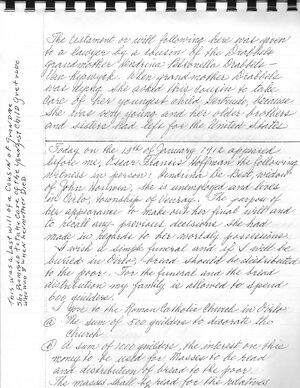 The testament or will following here was given
to a lawyer by a cousin of the Drabbels
grandmother Hendrina Petronella Drabbels-
Van Kipwyk. When grandmother Drabbels
was dying she asked this cousin to take
care of her youngest child Gertrude, because
she was very young and her older brothers
and sisters had left for the United States
Today on the 13th of January 1912 appeared
before me, Oscar Francis Hoffman the following
witness in person: Hendrina De Best, widow
of John Houwen, she is unemployed and lives
in Oirlo, township of Venray. The purpose of
her appearance to make out her final will and
to recall any previous decisions she had
made in regards to her worldly possessions.
I wish a simple funeral and if I will be
buried in Oirlo, bread should be distributed
to the poor. For the funeral and the bread
distribution my family is allowed to spend
600 guilders.
I give to the Roman Catholic Church in Oirlo
@ The sum of 500 guilders to decorate the
church.
A sum of 1000 guilders, the interest on this
money to be used for Masses to be read
and distribution of bread to the poor
The masses shall be read for the relatives
This was a last will of a cousin of grandma
She promised to take care of the youngest child Gertrude
who was 8 when her mother died